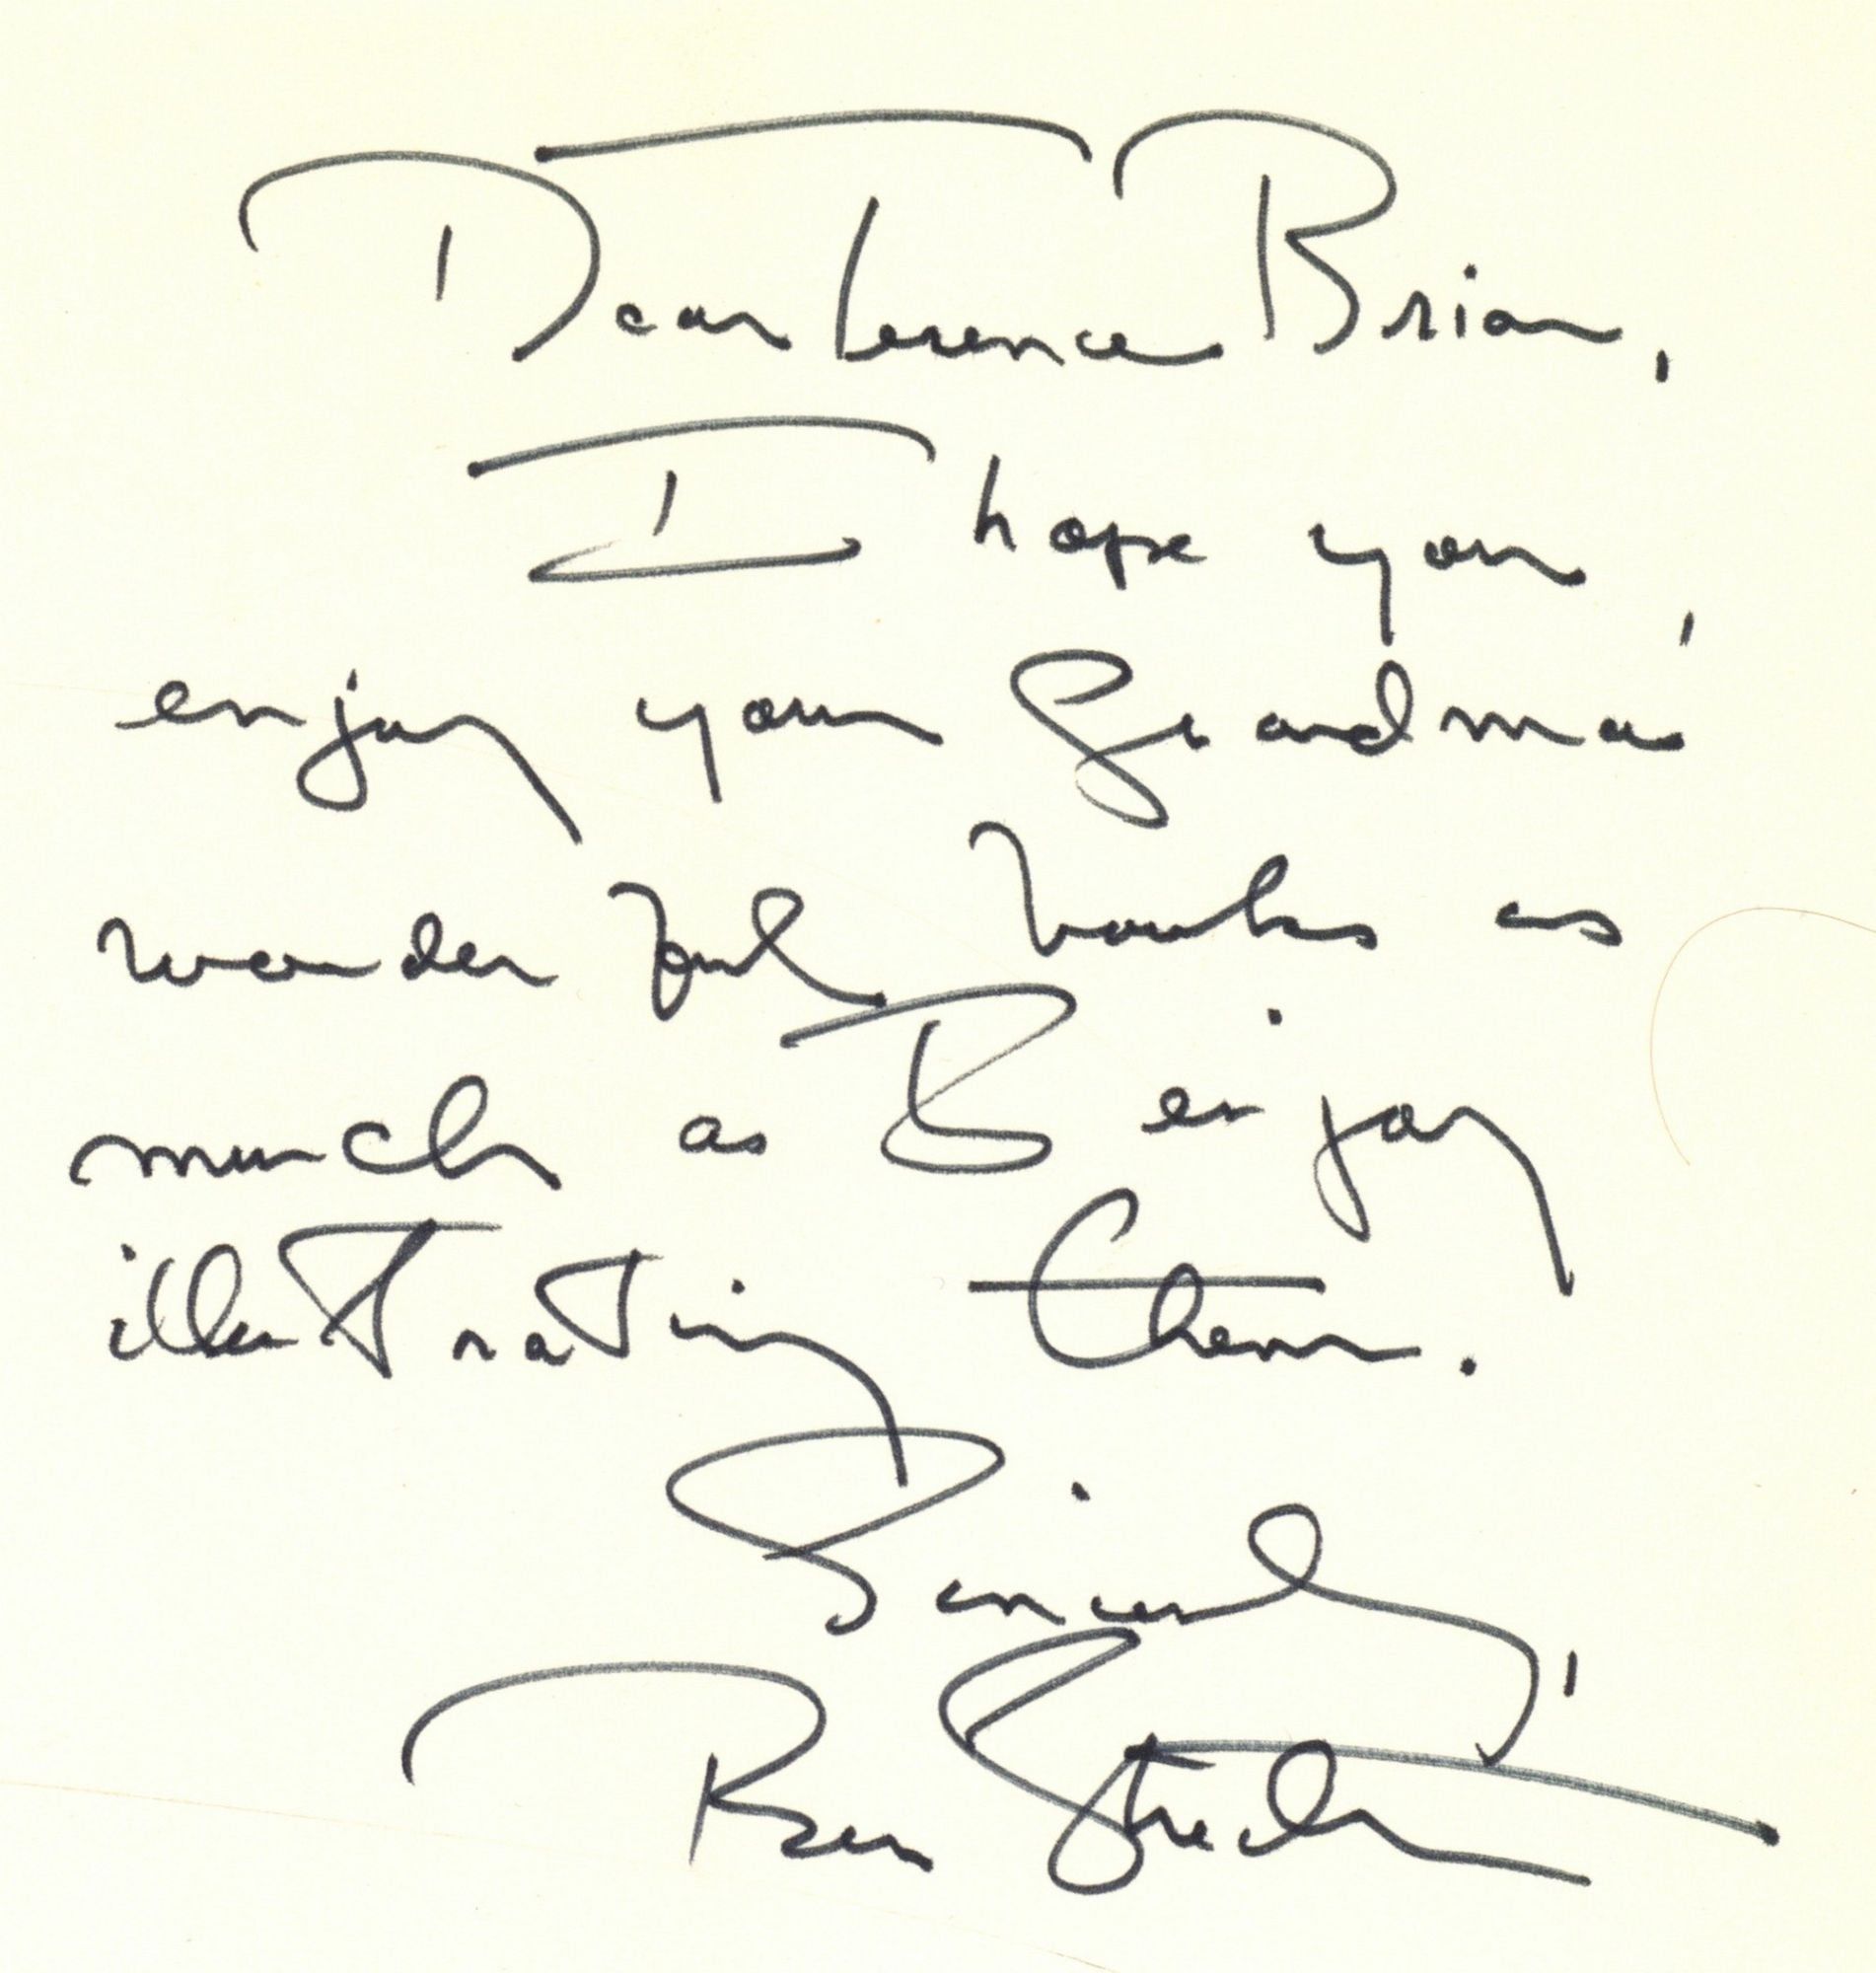 Dear Terence Brian,
I hope you
enjoy your Grandma's
wonderful books as
much as I enjoy
illustrating them.
Sincerely,
Ben Stahl